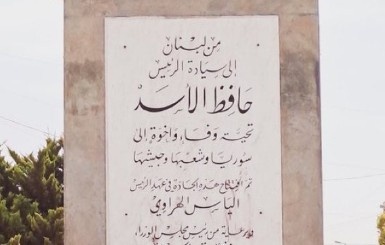 من لبنان
إلى سيادة الرئيس
حافظ الأسد
تحية وفاء وأخوة إلى
سوريا وشعبها وجيشها
تم افتتاح هذه الجادة في عهد الرئيس
الياس الهراوي
برعاية من رئيس مجلس الوزراء